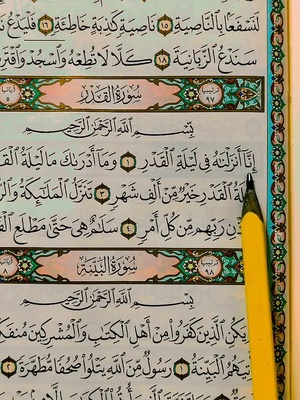 لَنَسْفَعًۢا بِٱلنَّاصِيَةِ ١٥ نَاصِيَةٍ كَٰذِبَةٍ خَاطِئَةٍ ١٦ فَلْيَدْعُ
سَنَدْعُ ٱلزَّبَانِيَةَ ١٨ كَلَّا لَا تُطِعْهُ وَٱسْجُدْ
ترتيبها ٩٧ سُورَةُ ٱلْقَدْرِ آياتها ٥
بِسْمِ ٱللَّهِ ٱلرَّحْمَٰنِ ٱلرَّحِيمِ
إِنَّآ أَنزَلْنَٰهُ فِى لَيْلَةِ ٱلْقَدْرِ ١ وَمَآ أَدْرَىٰكَ مَا لَيْلَةُ
ٱلْقَدْرِ خَيْرٌ مِّنْ أَلْفِ شَهْرٍ ٣ تَنَزَّلُ ٱلْمَلَٰٓئِكَةُ
رَبِّهِم مِّن كُلِّ أَمْرٍ ٤ سَلَٰمٌ هِىَ حَتَّىٰ مَطْلَعِ
ترتيبها ٩٨ سُورَةُ ٱلْبَيِّنَةِ آياتها ٨
بِسْمِ ٱللَّهِ ٱلرَّحْمَٰنِ ٱلرَّحِيمِ
يَكُنِ ٱلَّذِينَ كَفَرُوا۟ مِنْ أَهْلِ ٱلْكِتَٰبِ وَٱلْمُشْرِكِينَ
ٱلْبَيِّنَةُ ١ رَسُولٌ مِّنَ ٱللَّهِ يَتْلُوا۟ صُحُفًا مُّطَهَّرَةً ٢